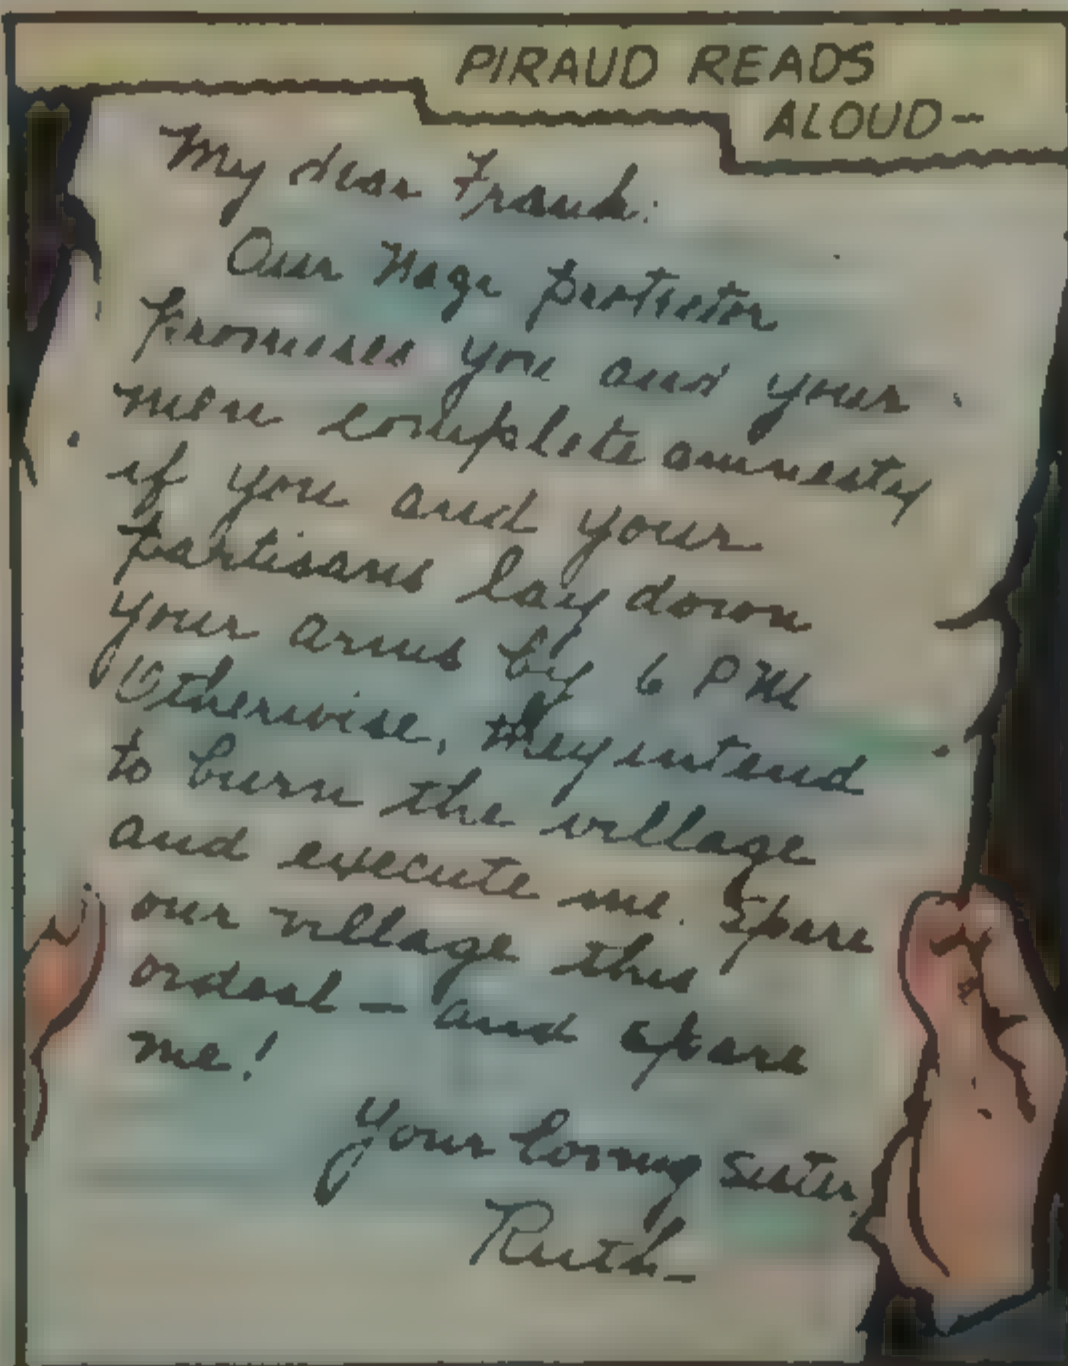 PIRAUD READS
ALOUD-
My dear Frank:
Our Nazi protector
promises you and your
men complete amnesty
if you and your
partisans lay down
your arms by 6 PM
Otherwise, they intend
to burn the village
and execute me. Spare
our village this
ordeal — and spare
me!
Your loving sister,
Ruth—